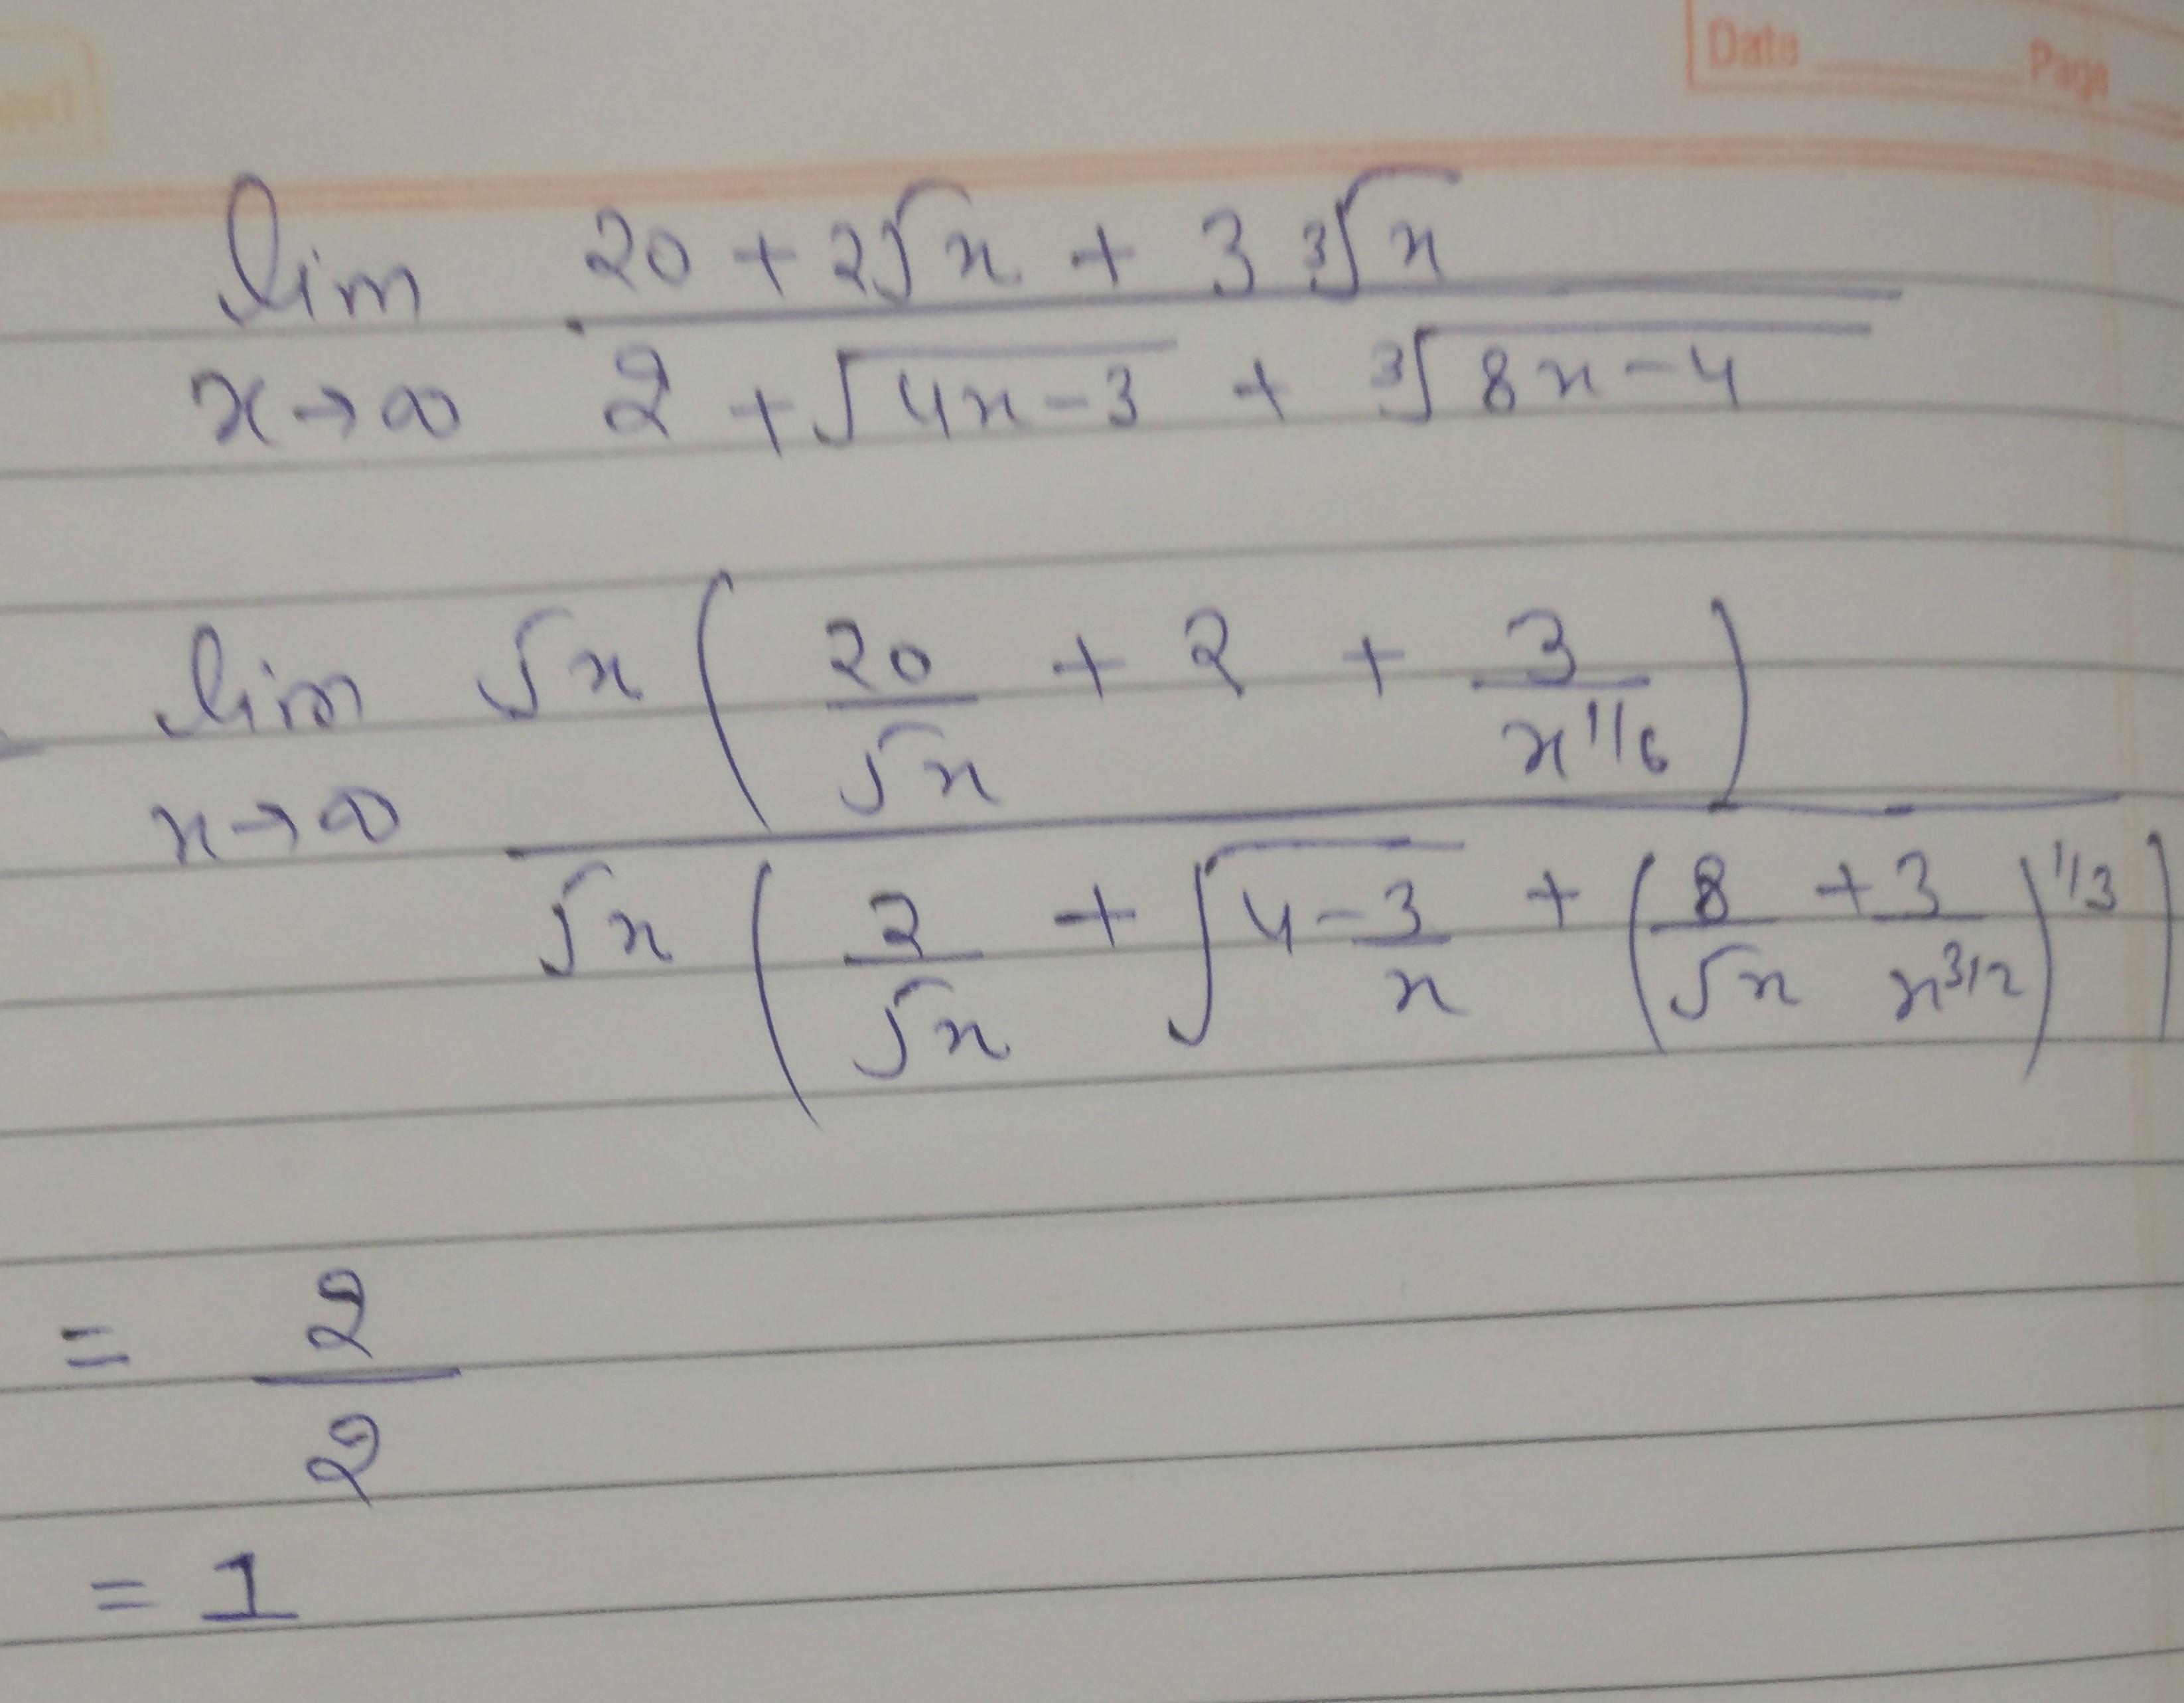 Date Page
lim 20 + 2√x + 3 ∛x
x→∞ 2 + √4x-3 + ∛8x-4
lim √x ( 20/√x + 2 + 3/x^1/6 )
x→∞ √x ( 2/√x + √4-3/x + ( 8/√x + 3/x^3/2 )^1/3 )
= 2/2
= 1